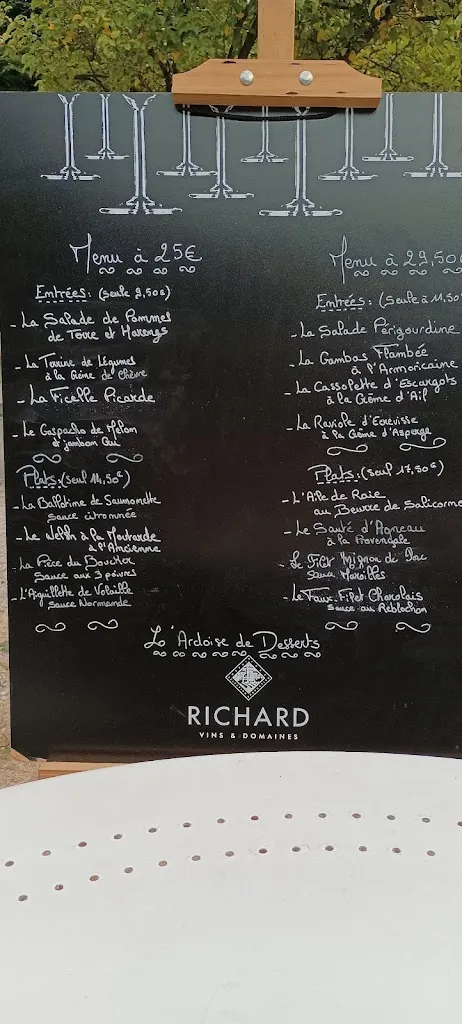 Menu à 25€
Entrées: (seule 9,50€)
- La Salade de Pommes
de Terre et Harengs
- La Terrine de Légumes
à la Crème de Chèvre
- La Ficelle Picarde
- Le Gaspacho de Melon
et jambon Cru
Plats: (seul 14,50€)
- La Ballotine de Saumonette
sauce citronnée
- Le Welsh à la Moutarde
à l'Ancienne
- La Pièce du Boucher
Sauce aux 3 poivres
- L'Aiguillette de Volaille
sauce Normande
Menu à 29,50€
Entrées: (Seule à 11,50
- La Salade Périgourdine
- La Gambas Flambée
à l'Armoricaine
- La Cassolette d'Escargots
à la Crème d'Ail
- La Raviole d'Ecrevisse
à la Crème d'Asperge
Plats: (seul 17,80€)
- L'Aile de Raie
au Beurre de Salicorne
- Le Sauté d'Agneau
à la Provençale
- Le Filet Mignon de Porc
Sauce Maroilles
- Le Faux-Filet Charolais
sauce au Reblochon
L'Ardoise de Desserts
RICHARD
VINS & DOMAINES